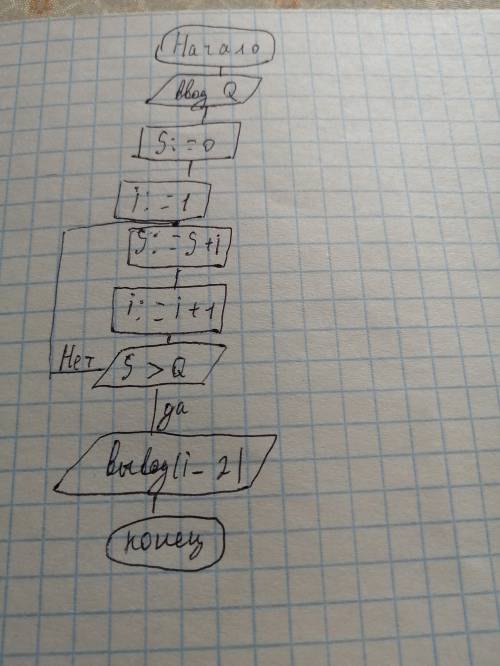 Начало
ввод Q
S:=0
i:=1
S:=S+i
i:=i+1
Нет S>Q
да
вывод(i-2)
конец